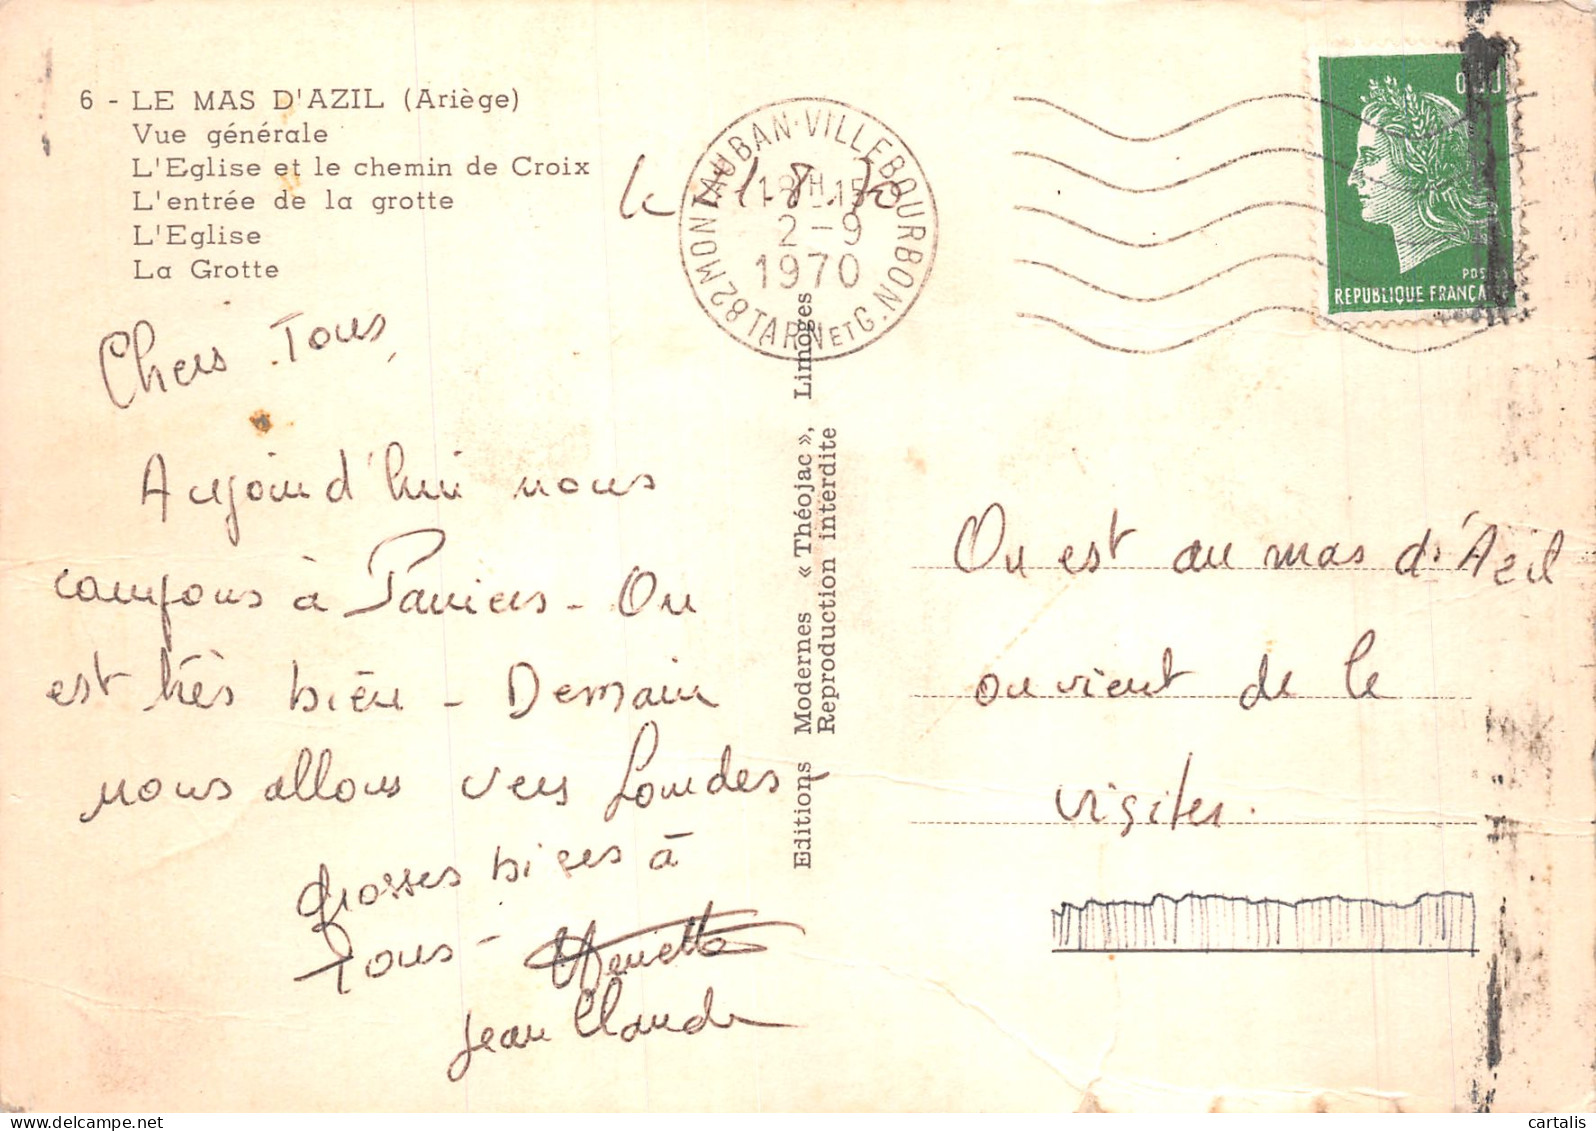 6 - LE MAS D'AZIL (Ariège)
Vue générale
L'Eglise et le chemin de Croix
L'entrée de la grotte
L'Eglise
La Grotte
82 MONTAUBAN-VILLEBOURBON
18H15
2-9
1970
TARN ET G.
0,30
POSTES
REPUBLIQUE FRANÇA
Chers Tous,
Aujourd'hui nous
campons à Pamiers - On
est très bien - Demain
nous allons vers Lourdes -
Grosses bises à
Tous - Henriette
Jean Claude
Editions Modernes « Théojac », Limoges
Reproduction interdite
On est au mas d'Azil
on vient de le
visiter.
© cartalis
www.delcampe.net